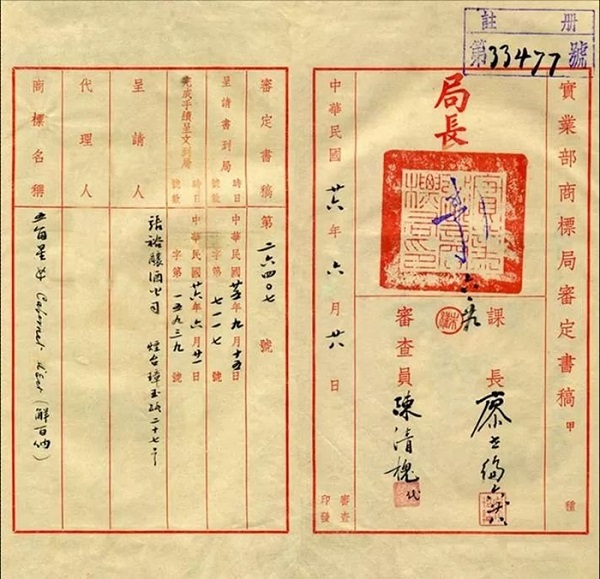 註册
第33477號
實業部商標局審定書稿 甲 種
課長 廖
審查員 陳清槐 代
局長
中華民國 廿六年 六月 日
審查
印發
審定書稿 第 二六四〇七 號
呈請書到局 時日 中華民國廿五年九月十五日
號數 字第 七一一七 號
完成手續呈文到局 時日 中華民國廿六年六月廿一日
號數 字第 一五九三九 號
呈請人 張裕釀酒公司 烟台璋玉路二十七号
代理人
商標名稱 Cabernet (解百納)